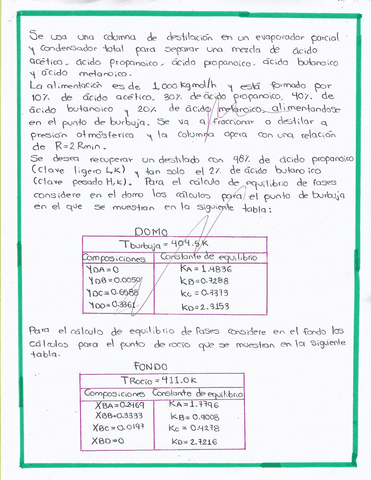 Se usa una columna de destilación en un evaporador parcial
y condensador total para separar una mezcla de ácido
acético, ácido propanoico, ácido propanoico, ácido butanoico
y ácido metanoico.
La alimentación es de 1,000 kgmol/h y está formada por
10% de ácido acético, 30% de ácido propanoico, 40% de
ácido butanoico y 20% de ácido metanoico, alimentandose
en el punto de burbuja. Se va a fraccionar o destilar a
presión atmósferica y la columna opera con una relación
de R=2Rmin.
Se desea recuperar un destilado con 98% de ácido propanoico
(clave ligero LK) y tan solo el 2% de ácido butanoico
(clave pesado HK). Para el cálculo de equilibrio de fases
considere en el domo los cálculos para el punto de burbuja
en el que se muestran en la siguiente tabla:
DOMO
Tburbuja = 404.5 K
Composiciones Constante de equilibrio
YDA=0 KA = 1.4836
YDB=0.0050 KB = 0.7288
YDC=0.6588 KC = 0.3373
YDD=0.3361 KD = 2.3153
Para el cálculo de equilibrio de fases considere en el fondo los
cálculos para el punto de rocio que se muestran en la siguiente
tabla.
FONDO
TRocio = 411.0 K
Composiciones Constante de equilibrio
XBA=0.2469 KA = 1.7796
XBB=0.3333 KB = 0.9008
XBC=0.0197 KC = 0.4278
XBD=0 KD = 2.7216